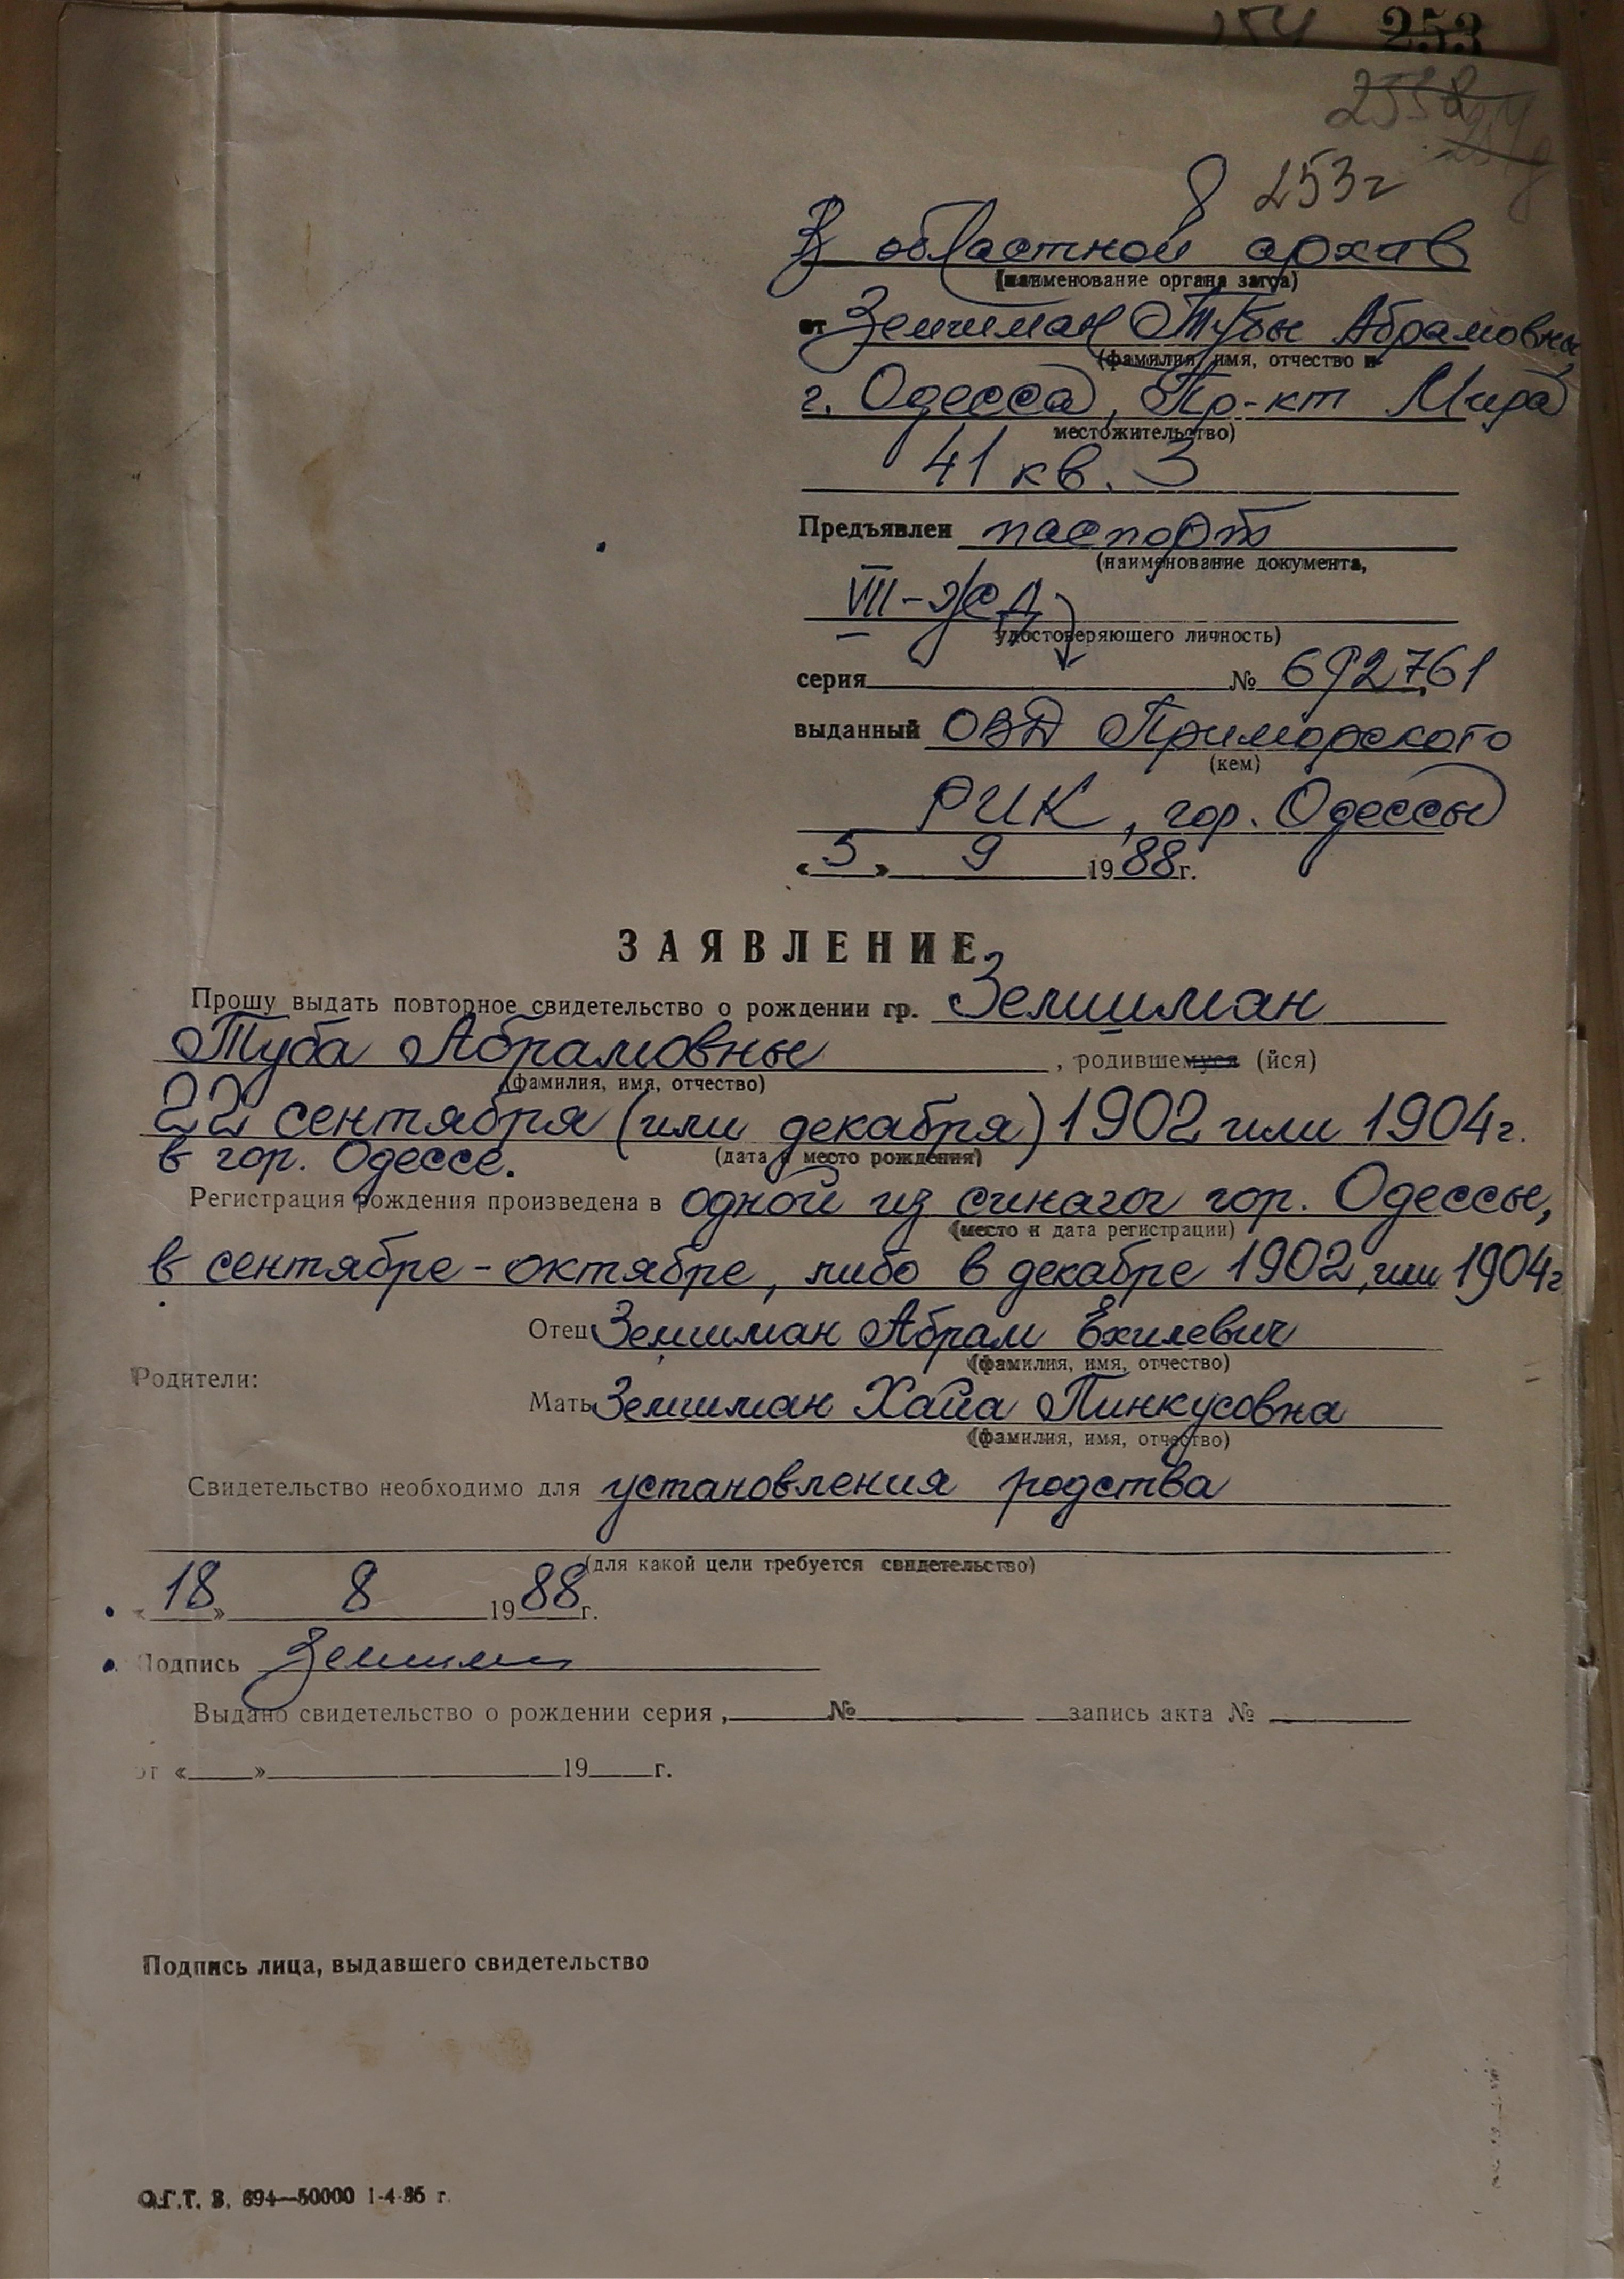 253
253г
В областной архив
(наименование органа загса)
от Земшман Тубы Абрамовны
(фамилия, имя, отчество и
г. Одесса, Пр-кт Мира
местожительство)
41 кв. 3
Предъявлен паспорт
(наименование документа,
VIII-ЖД
удостоверяющего личность)
серия № 692761
выданный ОВД Приморского
(кем)
РИК, гор. Одессы
«5» 9 1988г.
ЗАЯВЛЕНИЕ
Прошу выдать повторное свидетельство о рождении гр. Земшман
Туба Абрамовны, родившемуся (йся)
(фамилия, имя, отчество)
22 сентября (или декабря) 1902 или 1904г.
в гор. Одессе. (дата и место рождения)
Регистрация рождения произведена в одной из синагог гор. Одессы,
(место и дата регистрации)
в сентябре-октябре, либо в декабре 1902, или 1904г
Отец Земшман Абрам Ехилевич
(фамилия, имя, отчество)
Родители:
Мать Земшман Хайа Пинкусовна
(фамилия, имя, отчество)
Свидетельство необходимо для установления родства
(для какой цели требуется свидетельство)
«18» 8 1988г.
Подпись Земшман
Выдано свидетельство о рождении серия, № запись акта №
от « » 19 г.
Подпись лица, выдавшего свидетельство
О.Г.Т. З. 694—50000 1-4-86 г.